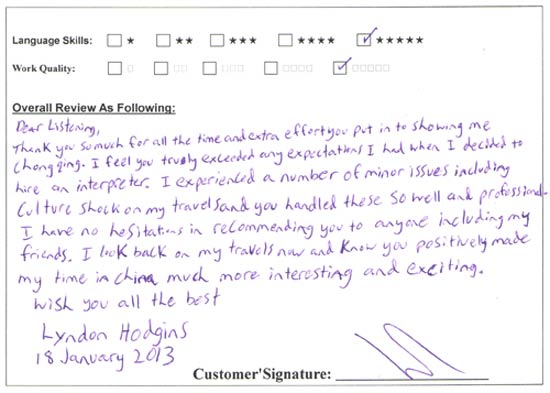 Language Skills: ☐ ★ ☐ ★★ ☐ ★★★ ☐ ★★★★ ☑ ★★★★★
Work Quality: ☐ □ ☐ □□ ☐ □□□ ☐ □□□□ ☑ □□□□□
Overall Review As Following:
Dear Listening,
Thank you so much for all the time and extra effort you put in to showing me
Chongqing. I feel you truely exceeded any expectations I had when I decided to
hire an interpreter. I experienced a number of minor issues including
culture shock on my travels and you handled these so well and professional.
I have no hesitations in recommending you to anyone including my
friends. I look back on my travels now and know you positively made
my time in china much more interesting and exciting.
Wish you all the best
Lyndon Hodgins
18 January 2013
Customer'Signature: